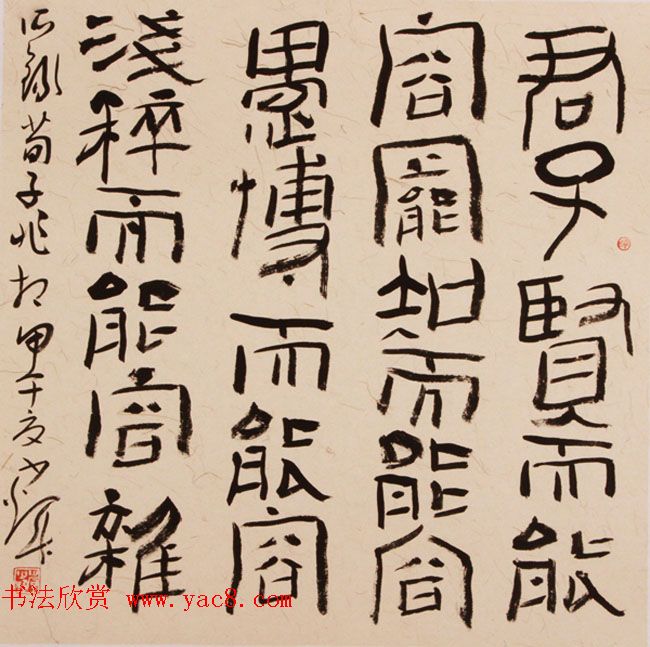 君子賢而能
容罷知而能容
愚博而能容
淺粹而能容雜
錄荀子非相甲午夏
书法欣赏 www.yac8.com